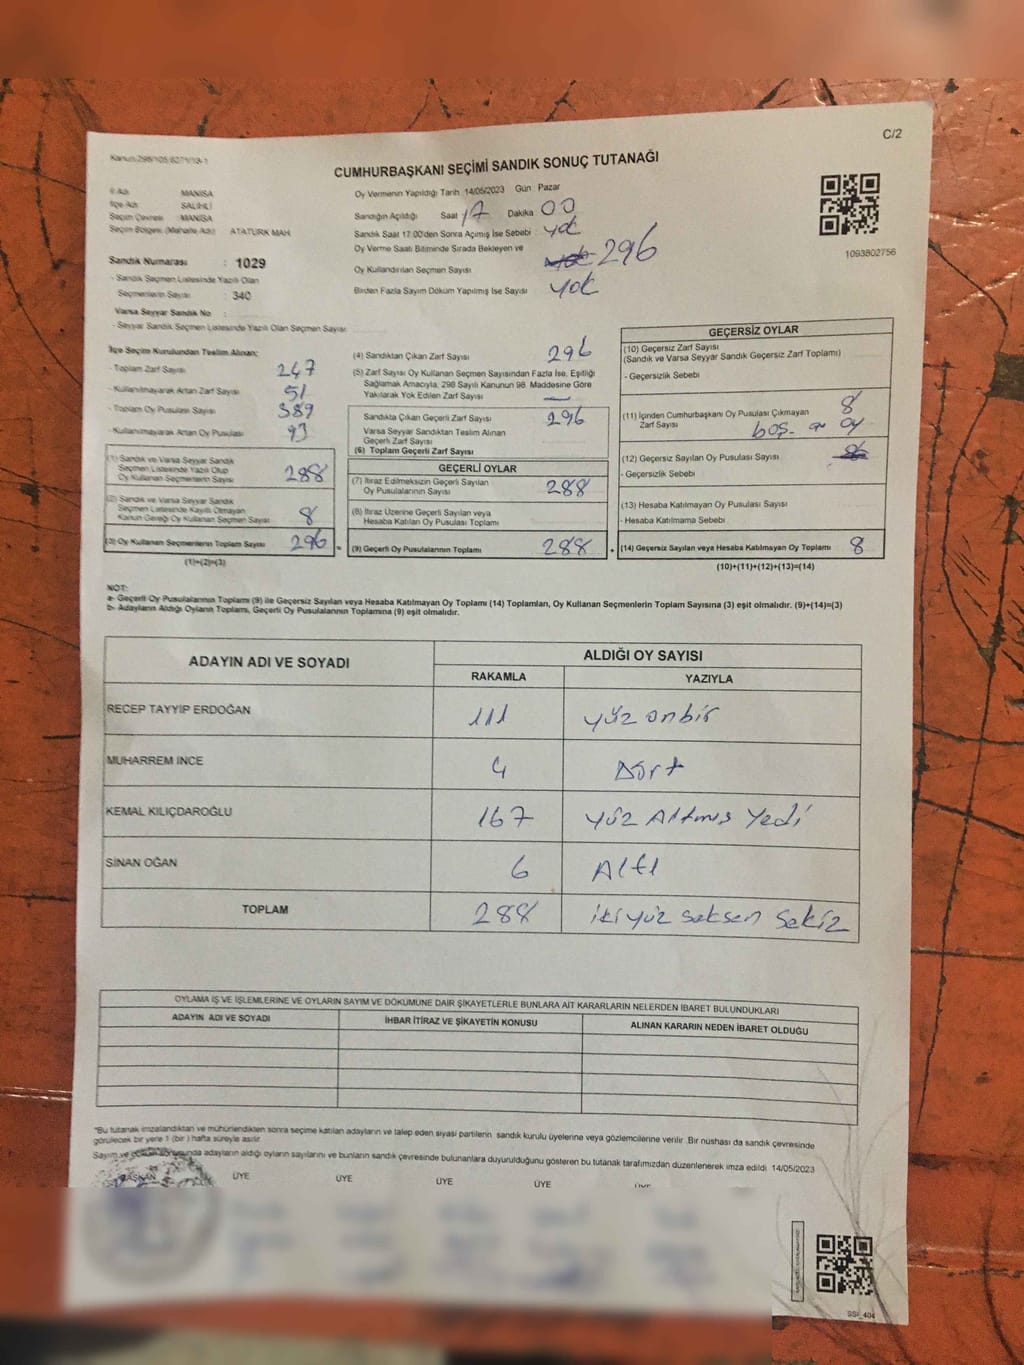 C/2
Kanun:298/105;6271/18-1
CUMHURBAŞKANI SEÇİMİ SANDIK SONUÇ TUTANAĞI
İl Adı MANİSA
İlçe Adı SALİHLİ
Seçim Çevresi :MANİSA
Seçim Bölgesi (Mahalle Adı) ATATÜRK MAH
Sandık Numarası : 1029
- Sandık Seçmen Listesinde Yazılı Olan
Seçmenlerin Sayısı : 340
Varsa Seyyar Sandık No :
- Seyyar Sandık Seçmen Listesinde Yazılı Olan Seçmen Sayısı
Oy Vermenin Yapıldığı Tarih 14/05/2023 Gün Pazar
Sandığın Açıldığı Saat 17 Dakika 00
Sandık Saat 17.00'den Sonra Açılmış İse Sebebi : yok
Oy Verme Saati Bitiminde Sırada Bekleyen ve
Oy Kullandırılan Seçmen Sayısı 296
Birden Fazla Sayım Döküm Yapılmış İse Sayısı yok
1093802756
İlçe Seçim Kurulundan Teslim Alınan;
- Toplam Zarf Sayısı 247
- Kullanılmayarak Artan Zarf Sayısı 51
- Toplam Oy Pusulası Sayısı 389
- Kullanılmayarak Artan Oy Pusulası 93
(1) Sandık ve Varsa Seyyar Sandık
Seçmen Listesinde Yazılı Olup
Oy Kullanan Seçmenlerin Sayısı 288
(2) Sandık ve Varsa Seyyar Sandık
Seçmen Listesinde Kayıtlı Olmayan
Kanun Gereği Oy Kullanan Seçmen Sayısı 8
(3) Oy Kullanan Seçmenlerin Toplam Sayısı 296 =
(1)+(2)=(3)
(4) Sandıktan Çıkan Zarf Sayısı 296
(5) Zarf Sayısı Oy Kullanan Seçmen Sayısından Fazla İse, Eşitliği
Sağlamak Amacıyla, 298 Sayılı Kanunun 98. Maddesine Göre
Yakılarak Yok Edilen Zarf Sayısı —
Sandıkta Çıkan Geçerli Zarf Sayısı 296
Varsa Seyyar Sandıktan Teslim Alınan
Geçerli Zarf Sayısı
(6) Toplam Geçerli Zarf Sayısı
GEÇERLİ OYLAR
(7) İtiraz Edilmeksizin Geçerli Sayılan
Oy Pusulalarının Sayısı 288
(8) İtiraz Üzerine Geçerli Sayılan veya
Hesaba Katılan Oy Pusulası Toplamı
(9) Geçerli Oy Pusulalarının Toplamı 288 +
GEÇERSİZ OYLAR
(10) Geçersiz Zarf Sayısı
(Sandık ve Varsa Seyyar Sandık Geçersiz Zarf Toplamı)
- Geçersizlik Sebebi
(11) İçinden Cumhurbaşkanı Oy Pusulası Çıkmayan 8
Zarf Sayısı boş oy
(12) Geçersiz Sayılan Oy Pusulası Sayısı
- Geçersizlik Sebebi
(13) Hesaba Katılmayan Oy Pusulası Sayısı
- Hesaba Katılmama Sebebi
(14) Geçersiz Sayılan veya Hesaba Katılmayan Oy Toplamı 8
(10)+(11)+(12)+(13)=(14)
NOT:
a- Geçerli Oy Pusulalarının Toplamı (9) ile Geçersiz Sayılan veya Hesaba Katılmayan Oy Toplamı (14) Toplamları, Oy Kullanan Seçmenlerin Toplam Sayısına (3) eşit olmalıdır. (9)+(14)=(3)
b- Adayların Aldığı Oyların Toplamı, Geçerli Oy Pusulalarının Toplamına (9) eşit olmalıdır.
ADAYIN ADI VE SOYADI ALDIĞI OY SAYISI
RAKAMLA YAZIYLA
RECEP TAYYİP ERDOĞAN 111 yüz onbir
MUHARREM İNCE 4 Dört
KEMAL KILIÇDAROĞLU 167 yüz Altmış Yedi
SİNAN OĞAN 6 Altı
TOPLAM 288 iki yüz seksen Sekiz
OYLAMA İŞ VE İŞLEMLERİNE VE OYLARIN SAYIM VE DÖKÜMÜNE DAİR ŞİKAYETLERLE BUNLARA AİT KARARLARIN NELERDEN İBARET BULUNDUKLARI
ADAYIN ADI VE SOYADI İHBAR İTİRAZ VE ŞİKAYETİN KONUSU ALINAN KARARIN NEDEN İBARET OLDUĞU
"Bu tutanak imzalandıktan ve mühürlendikten sonra seçime katılan adayların ve talep eden siyasi partilerin sandık kurulu üyelerine veya gözlemcilerine verilir. Bir nüshası da sandık çevresinde
görülecek bir yere 1 (bir ) hafta süreyle asılır.
Sayım ve döküm sonunda adayların aldığı oyların sayılarını ve bunların sandık çevresinde bulunanlara duyurulduğunu gösteren bu tutanak tarafımızdan düzenlenerek imza edildi. 14/05/2023
BAŞKAN ÜYE ÜYE ÜYE ÜYE ÜYE
SSI_404